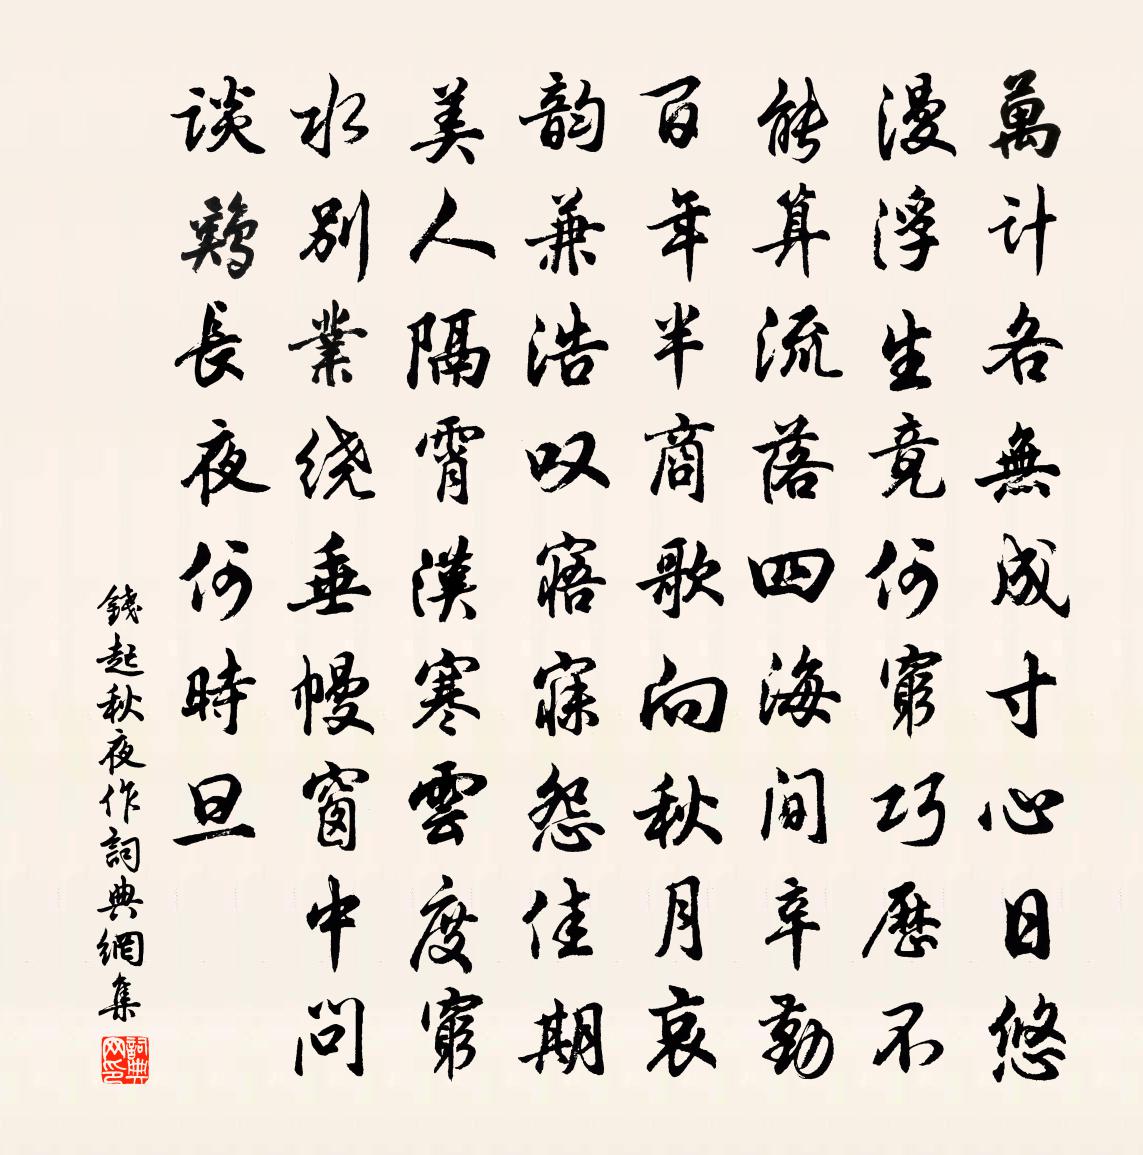 萬计各無成寸心日悠
漫浮生竟何窮巧歷不
能算流落四海间辛勤
百年半商歌向秋月哀
韵兼浩叹寤寐怨佳期
美人隔霄漢寒雲度窮
水别業绕垂幔窗中问
谈鷄長夜何時旦
錢起秋夜作詞典網集
詞典网印